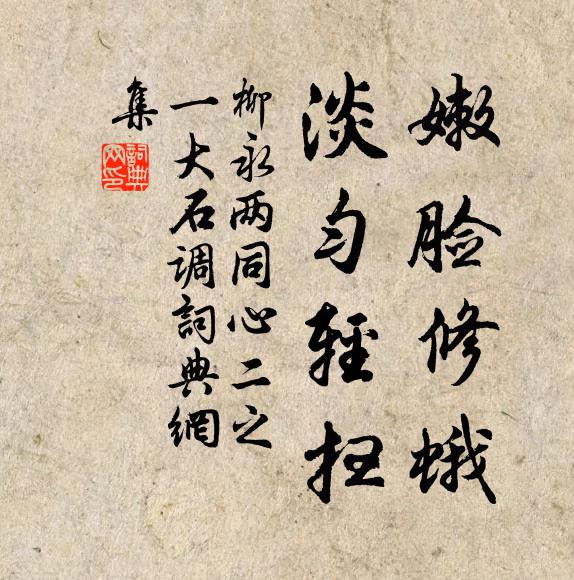 嫩脸修蛾
淡匀輕扫
柳永两同心二之
一大石调詞典網
集
詞典
网印